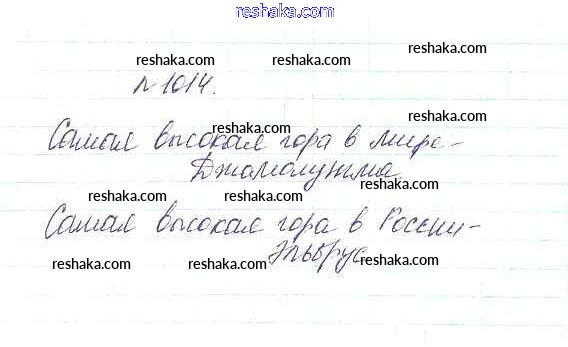 reshaka.com
reshaka.com reshaka.com reshaka.com
№1014.
reshaka.com reshaka.com reshaka.com
Самая высокая гора в мире-
Джамолунгма.
reshaka.com reshaka.com reshaka.com
Самая высокая гора в России-
Эльбрус
reshaka.com reshaka.com reshaka.com